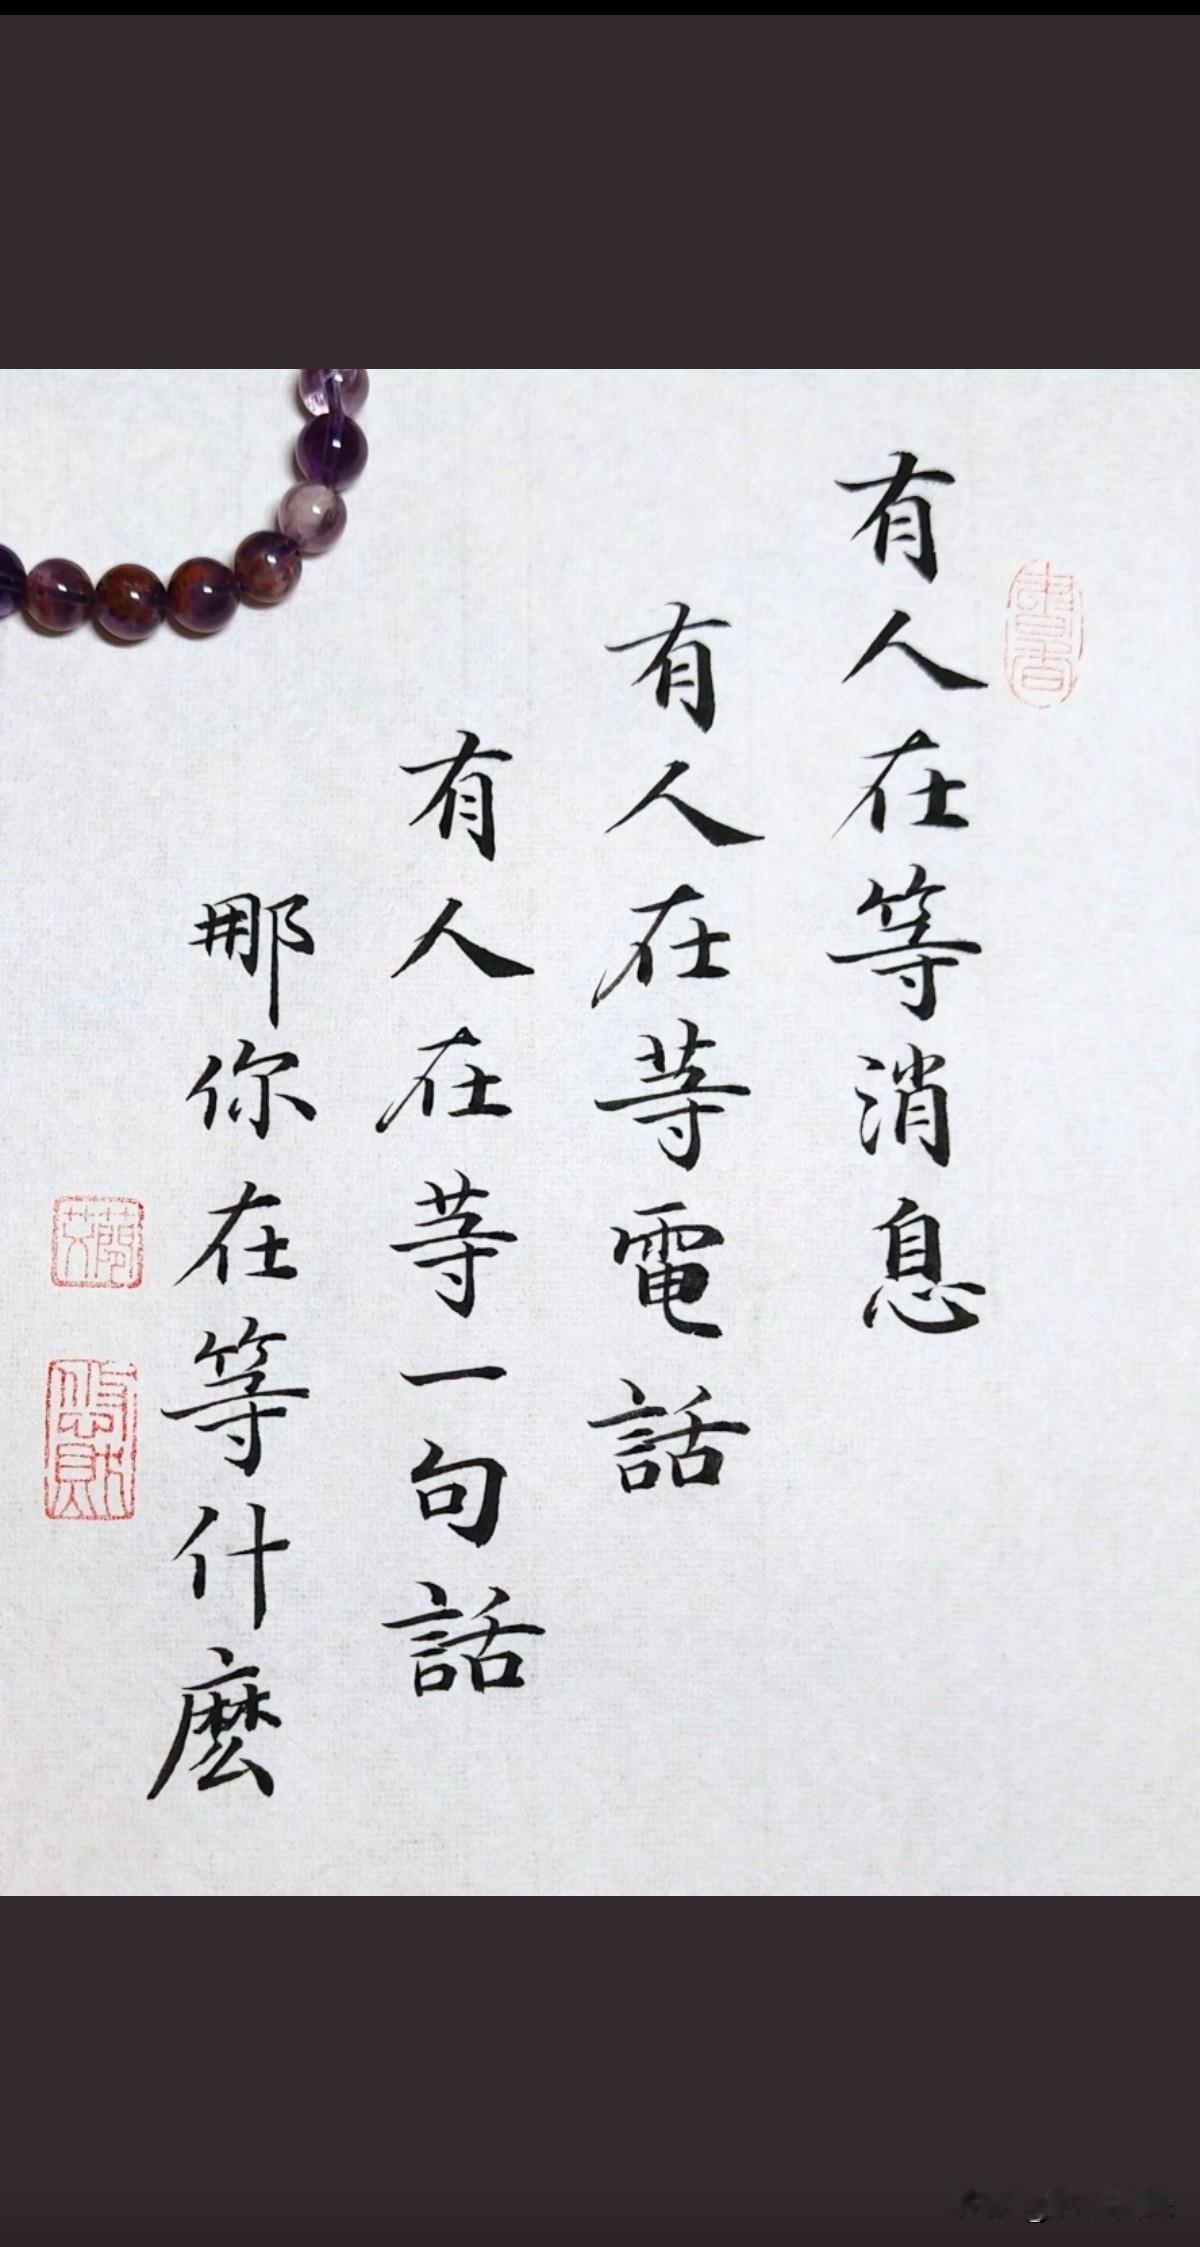 有人在等消息
有人在等電話
有人在等一句話
那你在等什麽
書香